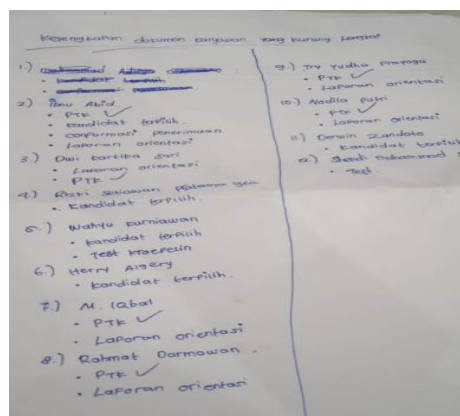 Kelengkapan dokumen karyawan yang kurang lengkap
1.)
2.) Ibnu Abid
• PTK ✓
• kandidat terpilih.
• conformasi penerimaan
• Laporan orientasi
3.) Dwi kartika sari
• Laporan orientasi
• PTK ✓
4.) Rizki Setiawan
• Kandidat terpilih.
5.) Wahyu kurniawan
• kandidat terpilih
• Test kraepelin
6.) Herry Algery
• kandidat terpilih.
7.) M. Iqbal
• PTK ✓
• Laporan orientasi
8.) Rahmat Darmawan.
• PTK ✓
• Laporan orientasi
9.) Try Yudha
• PTK ✓
• Laporan orientasi
10.) Nadila Putri
• PTK ✓
Laporan orientasi
11.) Derwin Zandoto
• kandidat terpilih
12.) Muhammad
• Test.